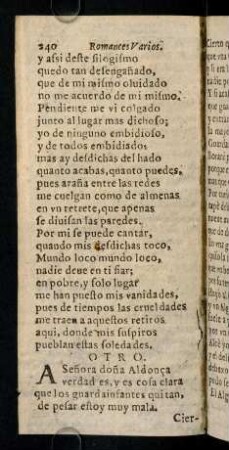 240 Romances Varios.
y assi deste silogismo
quedo tan desengañado,
que de mi mismo oluidado
no me acuerdo de mi mismo.
Pendiente me vi colgado
junto al lugar mas dichoso;
yo de ninguno embidioso,
y de todos embidiado:
mas ay desdichas del hado
quanto acabas, quanto puedes,
pues araña entre las redes
me cuelgan como de almenas
en vn retrete, que apenas
se diuisan las paredes.
Por mi se puede cantar,
quando mis desdichas toco,
Mundo loco mundo loco,
nadie deue en ti fiar;
en pobre, y solo lugar
me han puesto mis vanidades,
pues de tiempos las crueldades
me traen a aquestos retiros
aqui, donde mis suspiros
pueblan estas soledades.
OTRO.
A Señora doña Aldonça
verdad es, y es cosa clara
que los guardainfantes quitan,
de pesar estoy muy mala.
Cier-